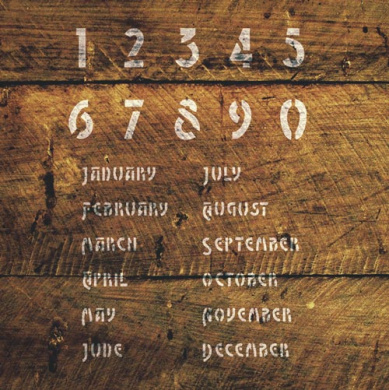 1 2 3 4 5
6 7 8 9 0
JANUARY JULY
FEBRUARY AUGUST
MARCH SEPTEMBER
APRIL OCTOBER
MAY NOVEMBER
JUNE DECEMBER